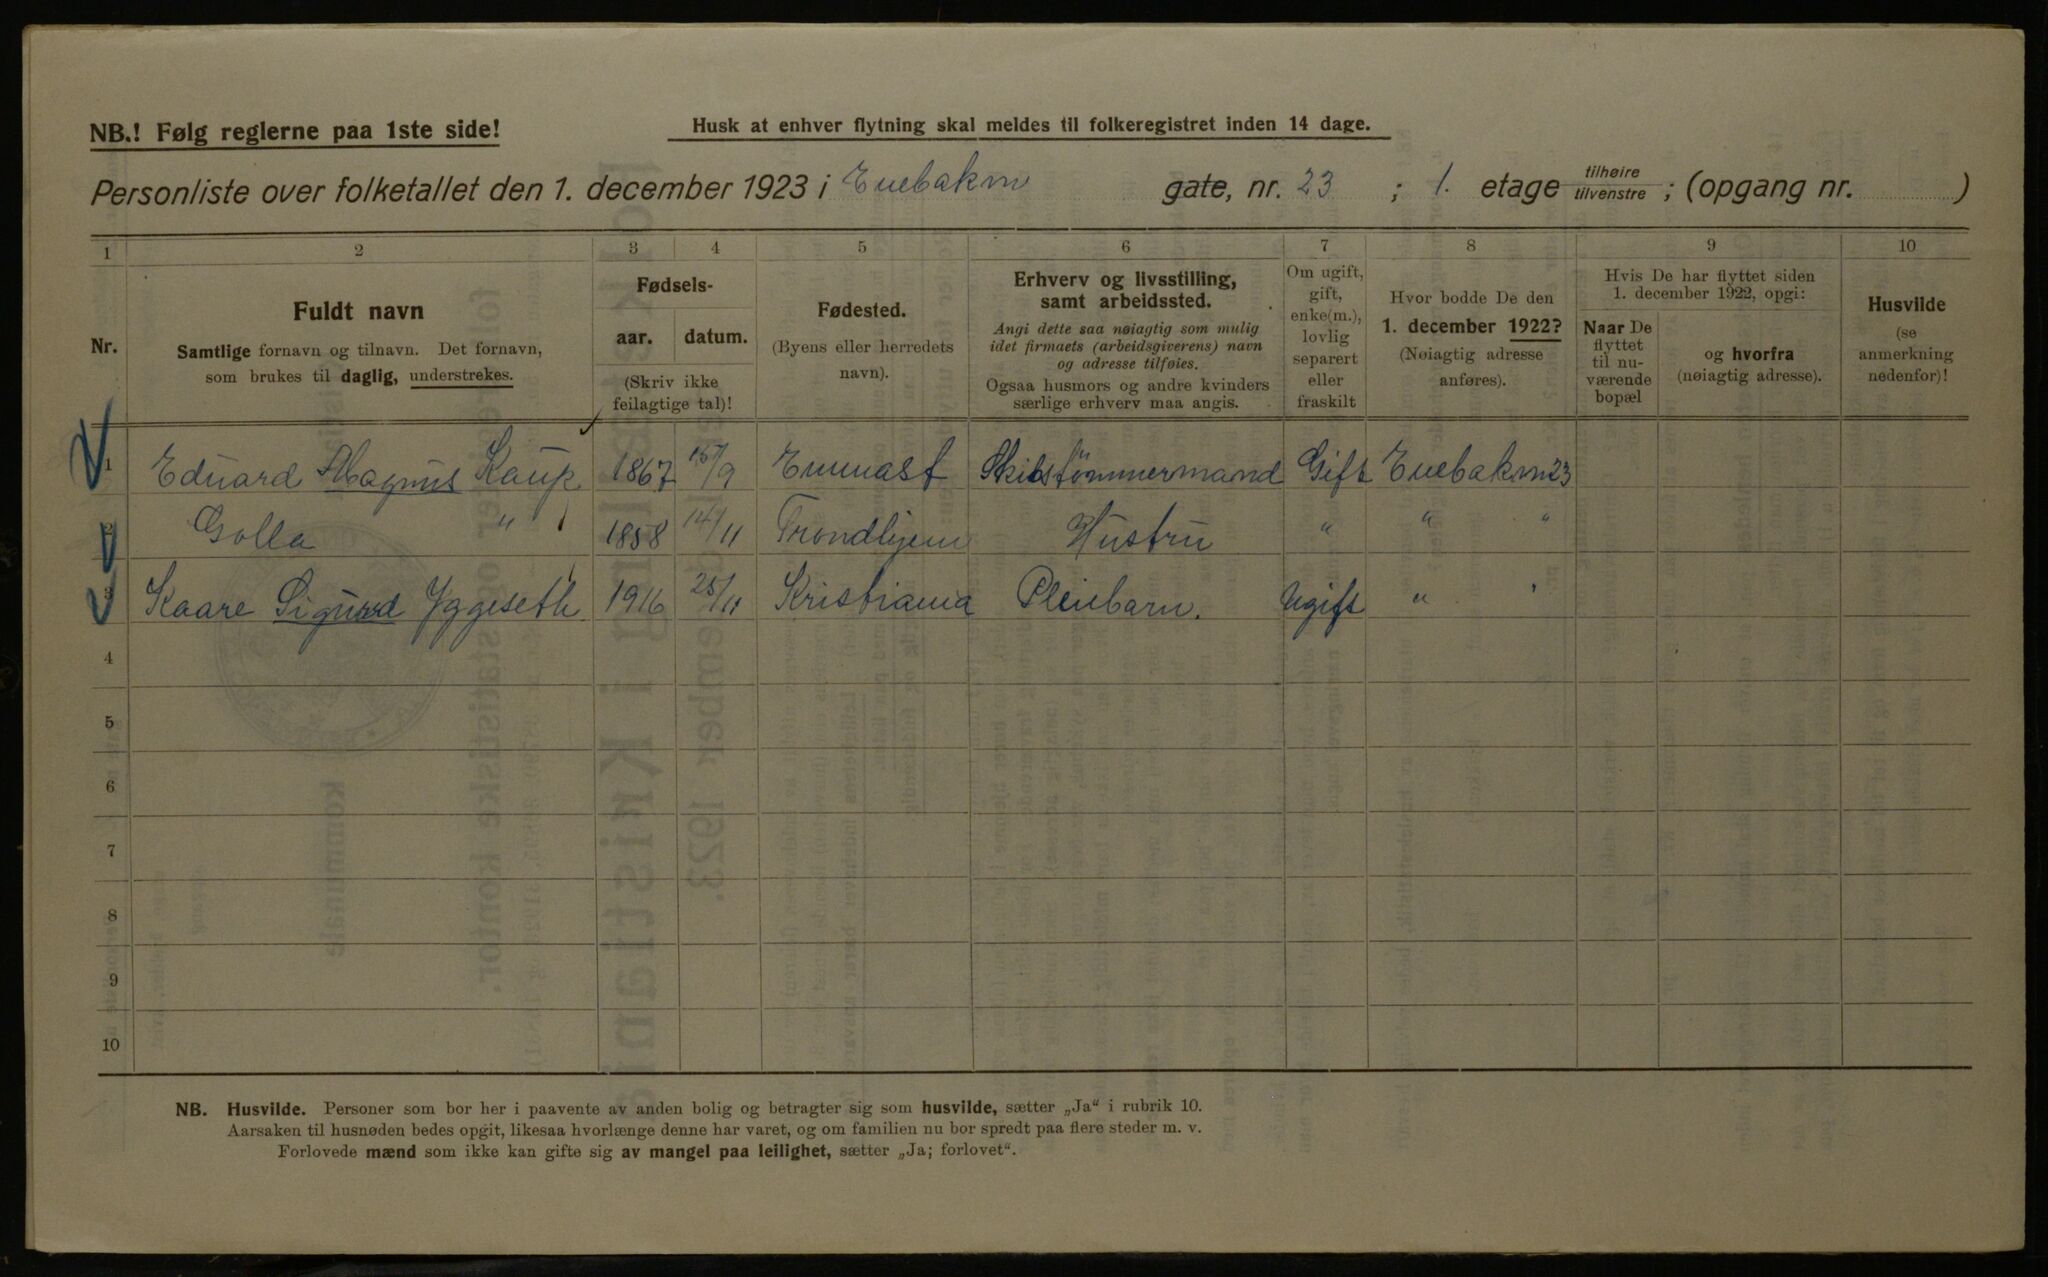 NB.! Følg reglerne paa 1ste side!
Husk at enhver flytning skal meldes til folkeregistret inden 14 dage.
Personliste over folketallet den 1. december 1923 i Enebakvn gate, nr. 23 ; 1. etage tilhøire tilvenstre ; (opgang nr. )
1 2 3 4 5 6 7 8 9 10
Nr.
Fuldt navn
Samtlige fornavn og tilnavn. Det fornavn,
som brukes til daglig, understrekes.
Fødsels-
aar. datum.
(Skriv ikke
feilagtige tal)!
Fødested.
(Byens eller herredets
navn).
Erhverv og livsstilling,
samt arbeidssted.
Angi dette saa nøiagtig som mulig
idet firmaets (arbeidsgiverens) navn
og adresse tilføies.
Ogsaa husmors og andre kvinders
særlige erhverv maa angis.
Om ugift,
gift,
enke(m.),
lovlig
separert
eller
fraskilt
Hvor bodde De den
1. december 1922?
(Nøiagtig adresse
anføres).
Hvis De har flyttet siden
1. december 1922, opgi:
Naar De
flyttet
til nu-
værende
bopæl
og hvorfra
(nøiagtig adresse).
Husvilde
(se
anmerkning
nedenfor)!
1 Eduard Magnus Kaup 1867 15/9 Emmast Skibstømmermand Gift Enebakvn 23
2 Golla " 1858 14/11 Trondhjem Hustru " " "
3 Kaare Sigurd Yggeseth 1916 25/11 Kristiania Pleiebarn. Ugift " "
4
5
6
7
8
9
10
NB. Husvilde. Personer som bor her i paavente av anden bolig og betragter sig som husvilde, sætter „Ja“ i rubrik 10.
Aarsaken til husnøden bedes opgit, likesaa hvorlænge denne har varet, og om familien nu bor spredt paa flere steder m. v.
Forlovede mænd som ikke kan gifte sig av mangel paa leilighet, sætter „Ja; forlovet“.